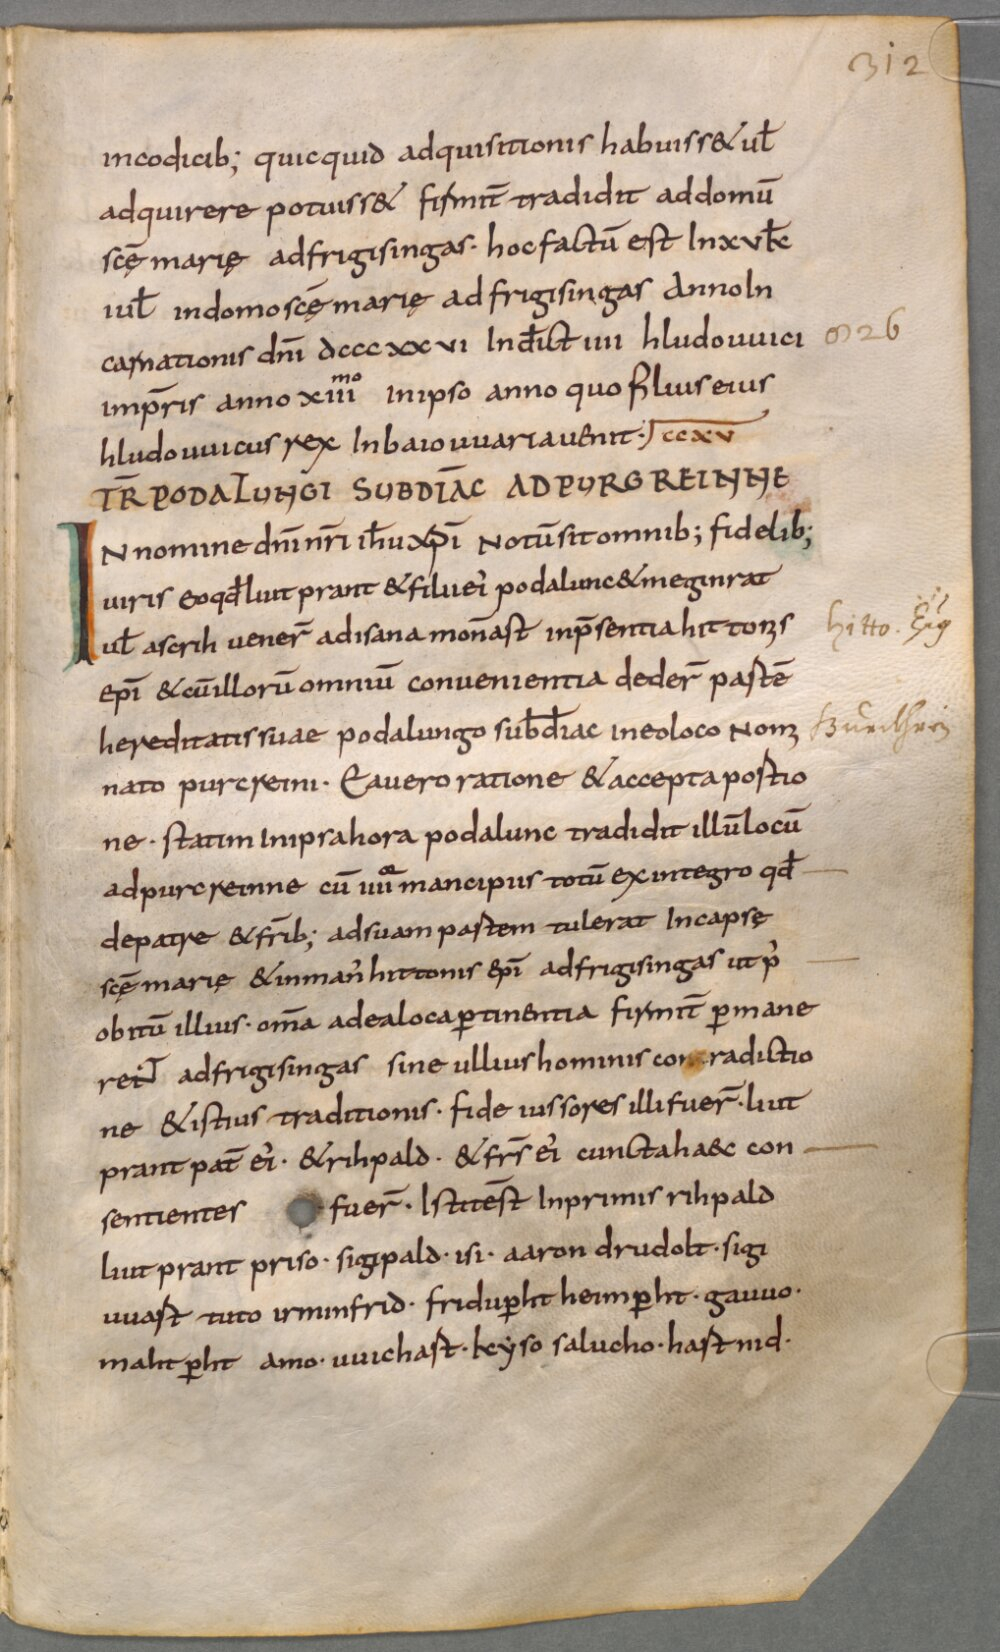 312
incodicib; quicquid adquisitionis habuiss& ul̄
adquirere potuiss& firmit̄ tradidit addomū
scę̄ marię adfrigisingas· hoc factū est Inxvkl̄
iul̄ indomo scę̄ marię ad frigisingas Anno In
carnationis dn̄i dcccxxvi Ind̄ict iiii hludouuici
826
imp̄ris anno xiii mo inipso anno quo filius eius
hludouuicus rex Inbaiouuaria uenit· ccxv
TR̄ PODALUNGI SUBDIĀC ADPURGREINNE
IN nomine dn̄i nr̄i ih̄u xp̄i Notū sit omnib; fidelib;
uiris eoqd̄ liutprant & filii ei podalunc & meginrat
ul̄ ascrih uener̄ adisana mon̄ast inp̄sentia hittonis
hitto.
ep̄i & cū illorū omniū convenientia deder̄ partē
hereditatis suae podalungo subd̄iac ineoloco Nomi
nato purcreini· Ea uero ratione & accepta postio
ne· statim Inipsa hora podalunc tradidit illū locū
adpurcreinne cū iiii mancipiis totū exintegro qd̄
depatre & fr̄ib; adsuam partem tulerat Incapsę
scę̄ marię & inman̄ hittonis ep̄i adfrigisingas ut p̄
obitū illius· om̄a adealoca ꝑtinentia firmit̄ ꝑmane
ret adfrigisingas sine ullius hominis contradictio
ne & istius traditionis· fide iussores illi fuer̄· liut
prant pat̄ ei· & rihpald· & frs̄ ei cuncta haec con
sentientes fuer̄· Isti test̄ Inprimis rihpald
liutprant priso· sigipald· isi· aaron drudolt· sigi
uuart tuto irminfrid· friduꝑht heimꝑht· gauuo·
mahtꝑht amo· uuichart· keyso salucho· hartnid·